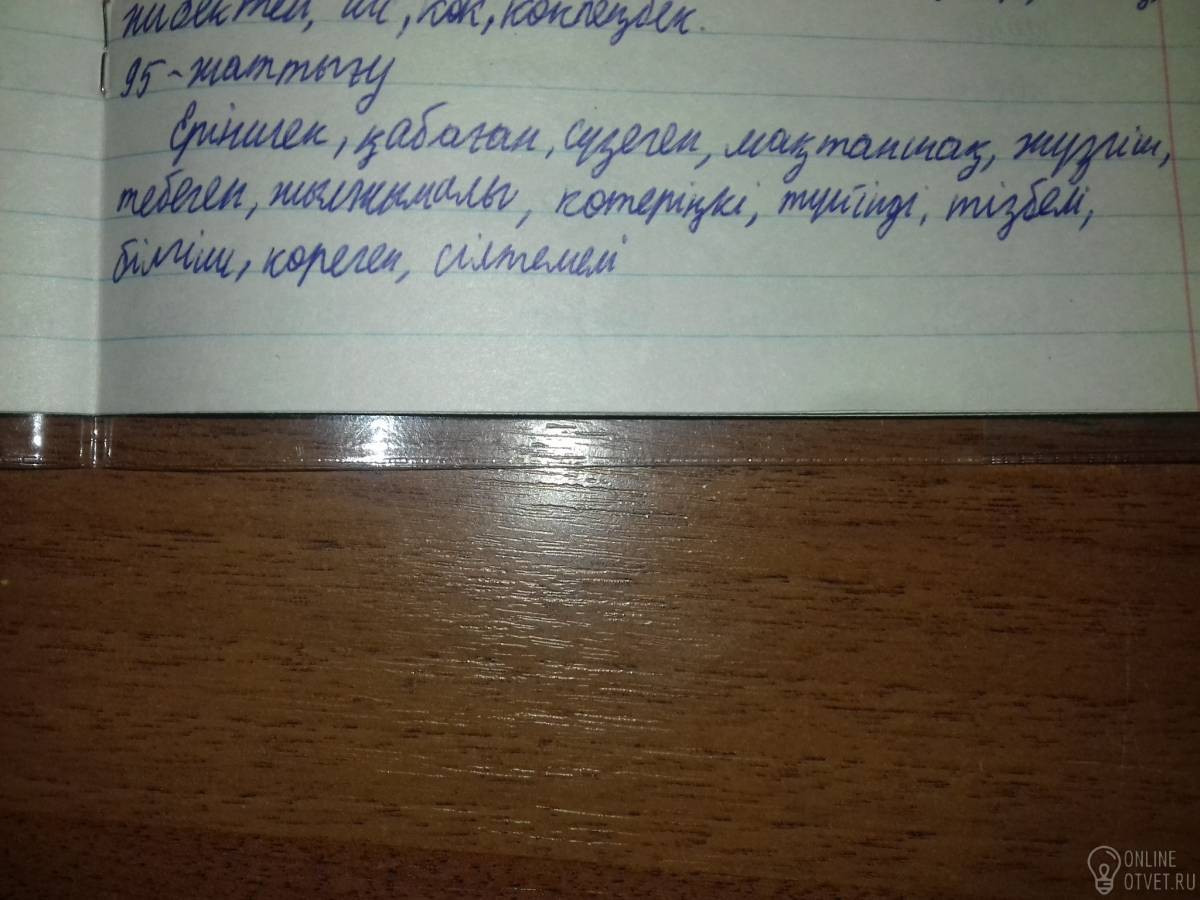 жібектей, көк, көкпеңбек.
95-жаттығу
Еріншек, қабаған, сүзеген, мақтаншақ, жүзгіш,
тебеген, жылжымалы, көтеріңкі, түйінді, тізбелі,
білгіш, көреген, сілтемелі
ONLINE
OTVET.RU